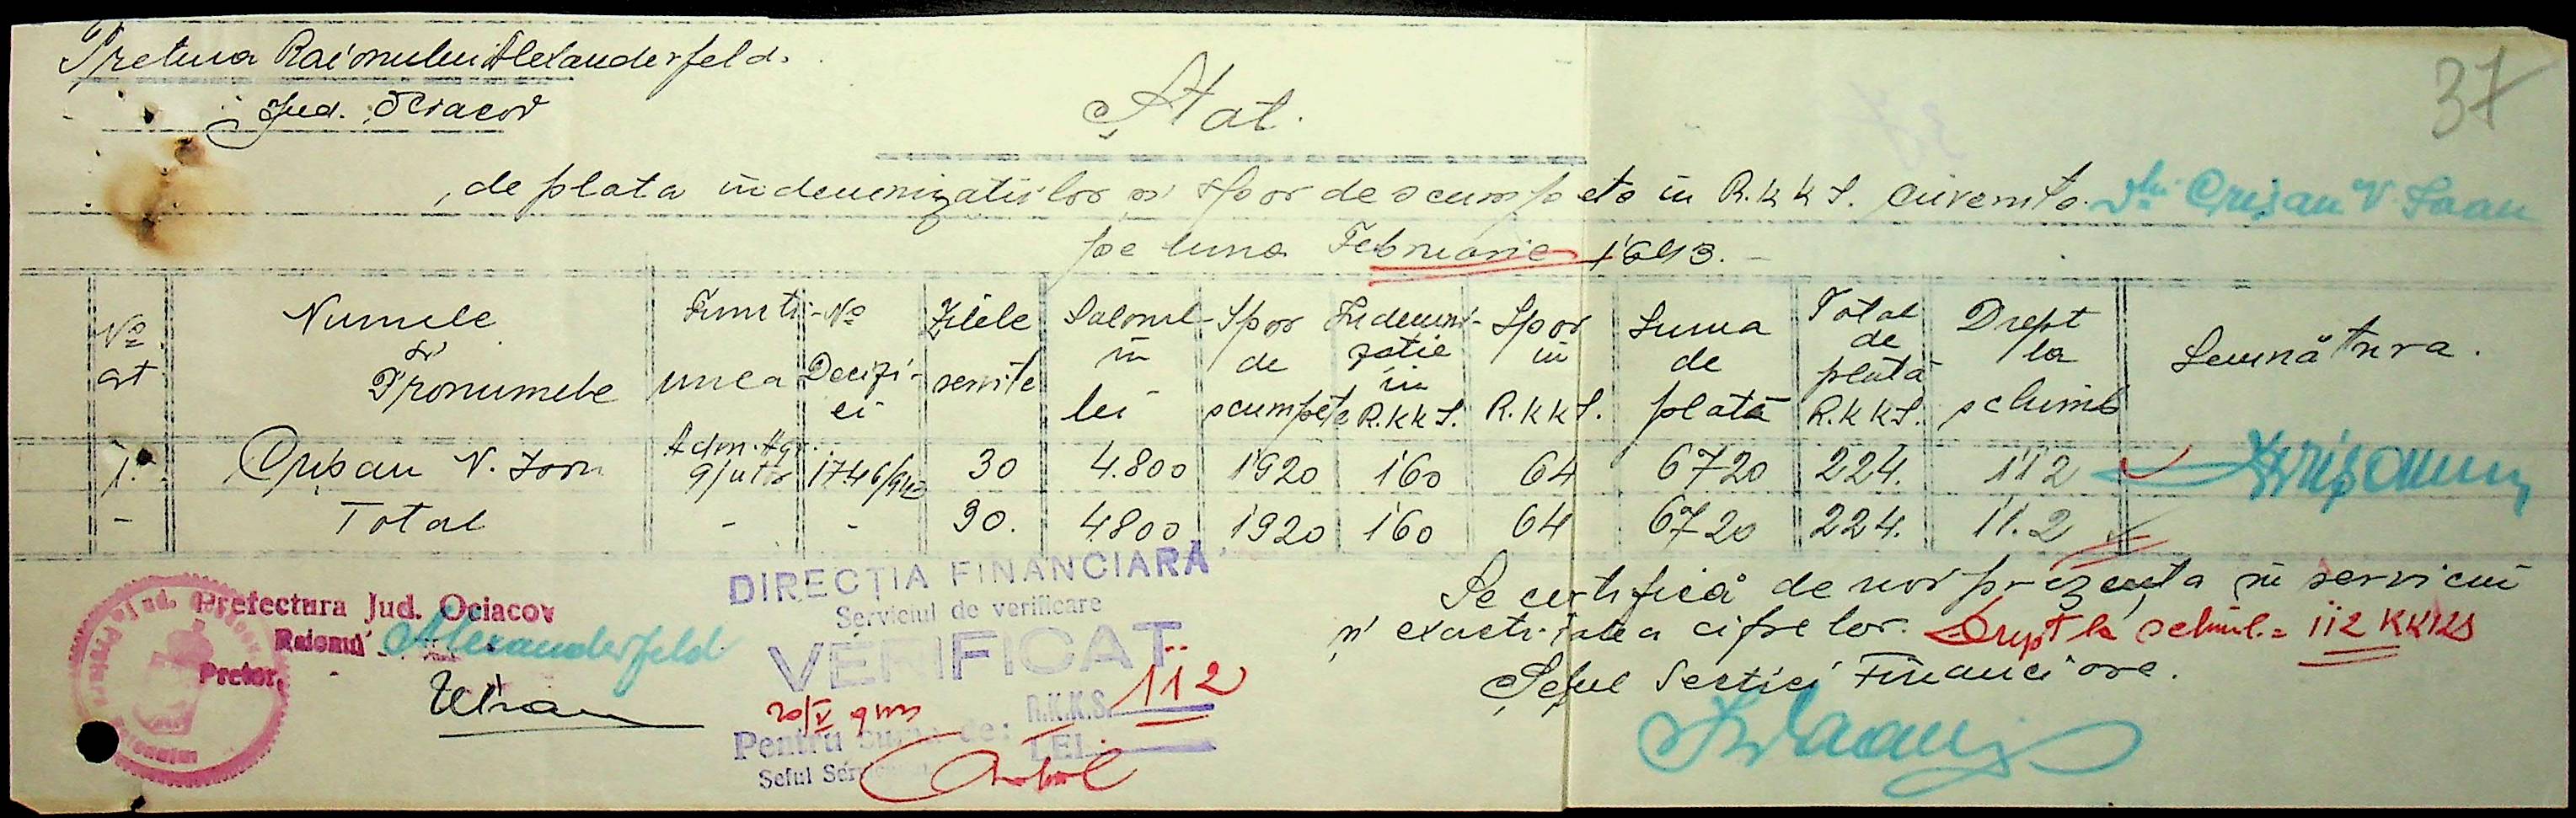 Pretura Raionului Alexanderfeld.
Jud. Ociacov
37
Ștat.
de plata indemnizatiilor și spor de scumpete in R.K.K.S. cuvenite Dlui Crișan V. Ioan
pe luna Februarie 1943.
No crt Numele și Pronumele Functiunea No Deciziei Zilele servite Salariul in lei Spor de scumpete Indemnizatie in R.K.K.S. Spor in R.K.K.S. Suma de plată Total de plată R.K.K.S. Drept la schimb Semnătura.
1. Crișan V. Ioan Adm. Agr. ajutor 1746/942 30 4.800 1920 160 64 6720 224. 112 Krișan
- Total - - 30. 4800 1920 160 64 6720 224. 112
Se certifică de noi prezența in serviciu
și exactitatea cifrelor. Drept la schimb = 112 RKKS
Șeful Sectiei Financiare.
Prefectura Jud. Ociacov
Raionul Alexanderfeld
Pretor,
DIRECȚIA FINANCIARĂ
Serviciul de verificare
VERIFICAT
20/V
R.K.K.S. 112
Pentru suma de:
LEI
Seful Serv